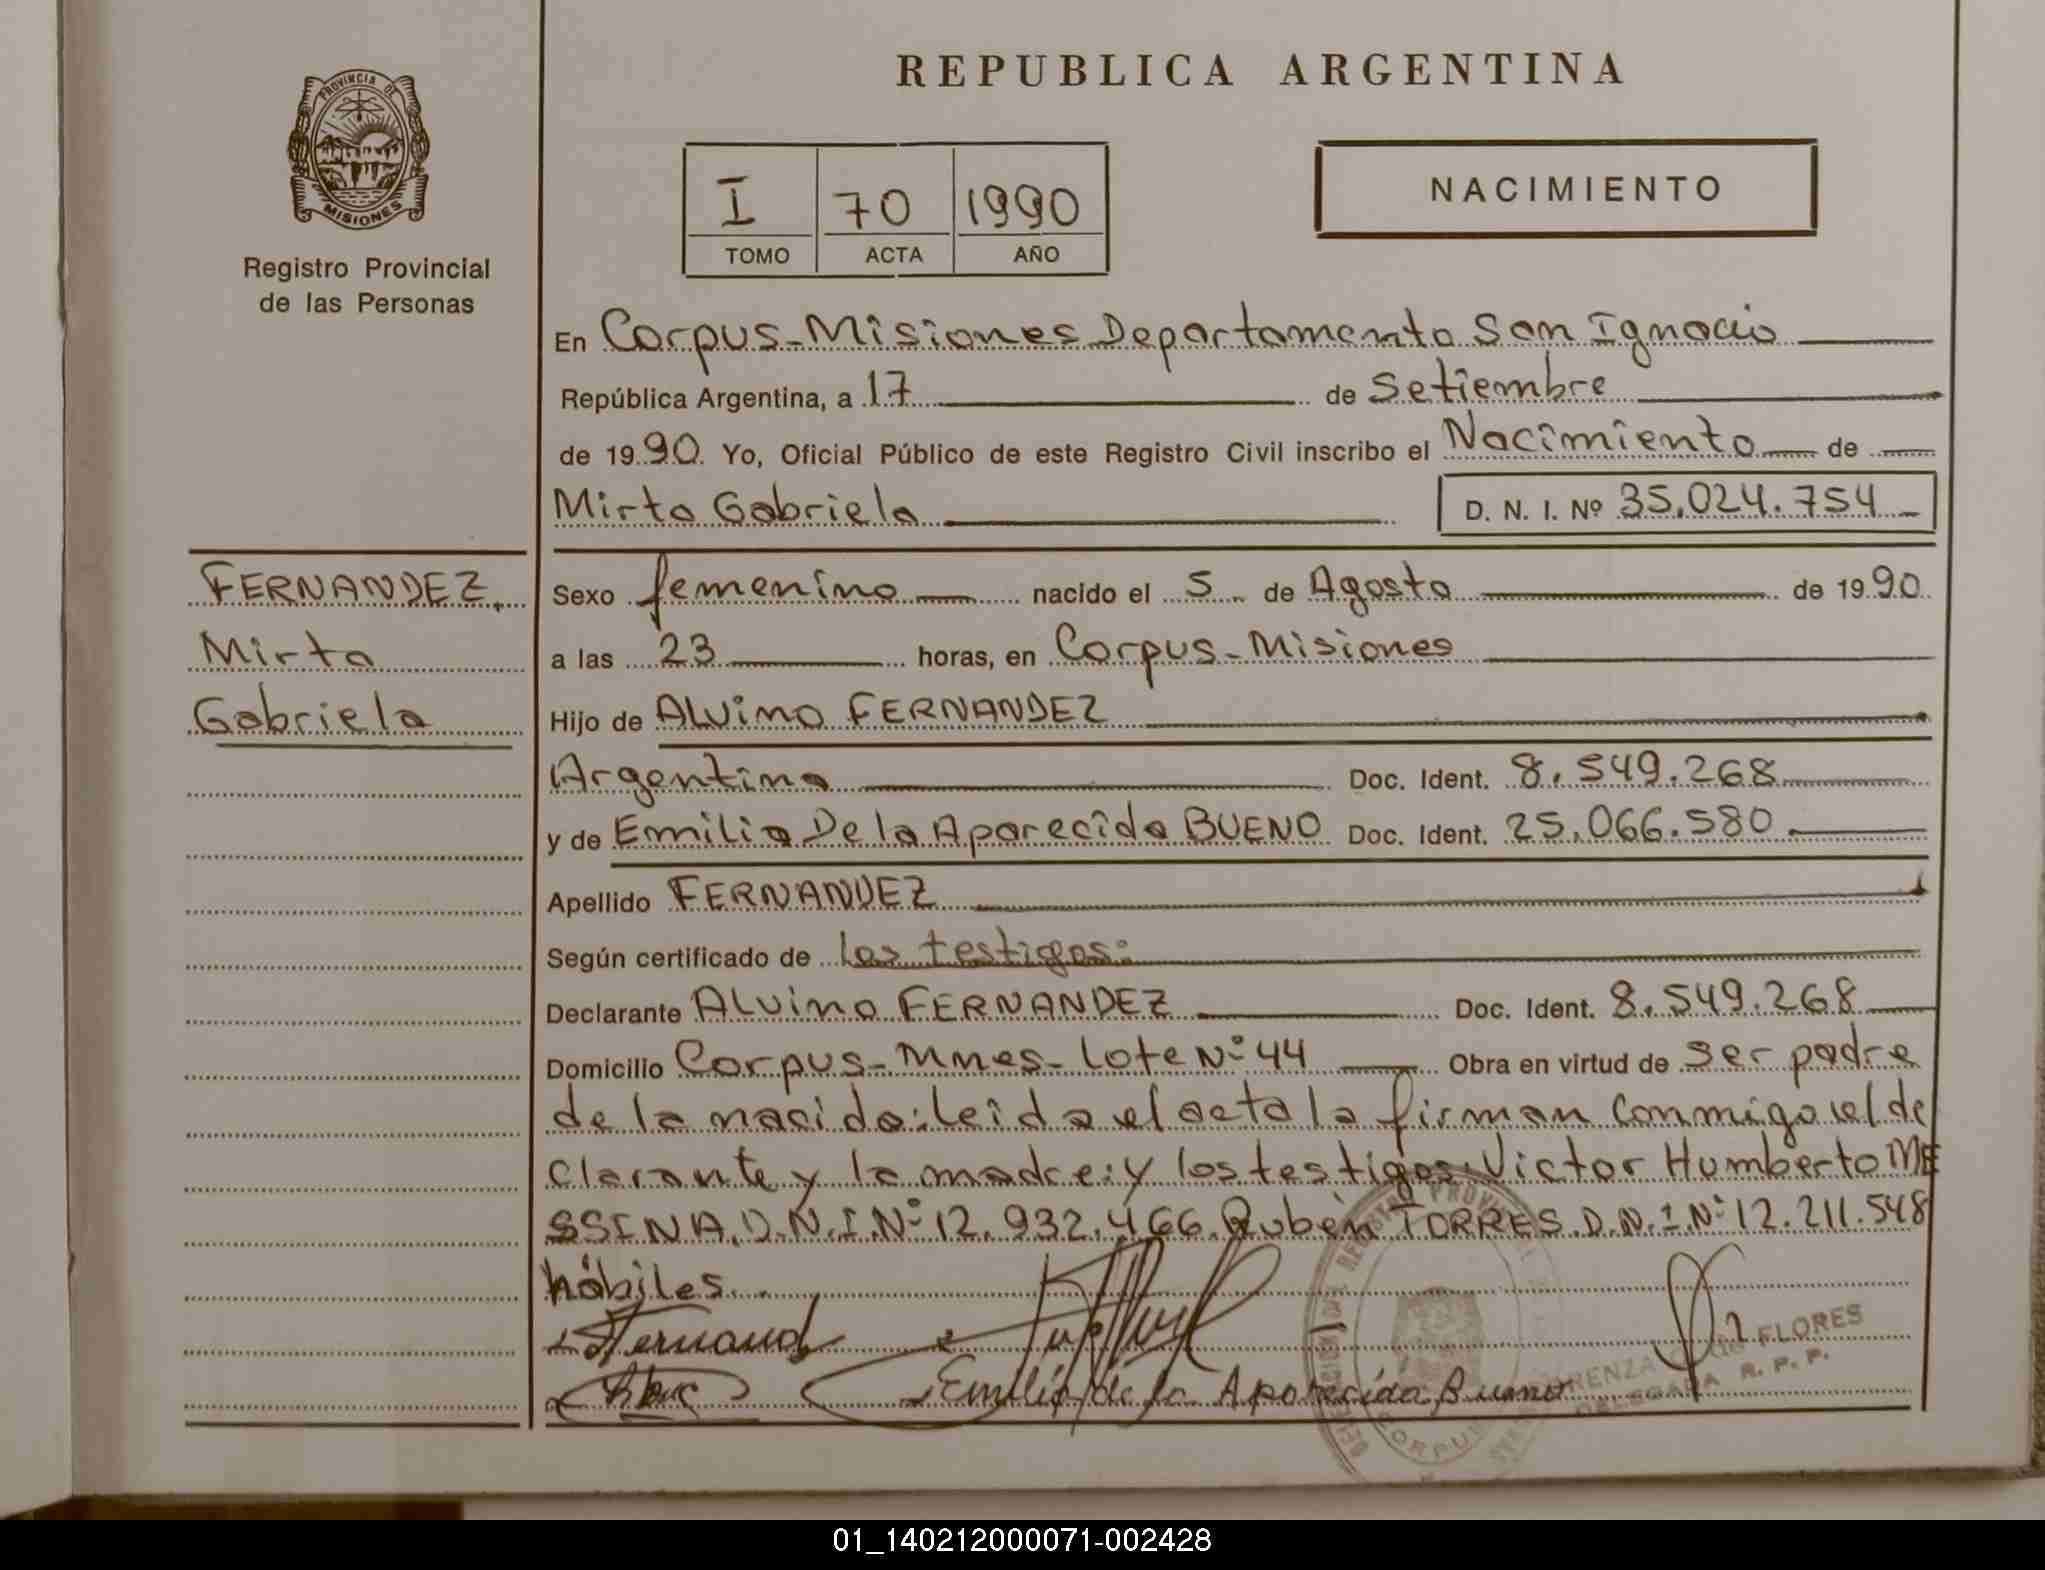 REPUBLICA ARGENTINA
PROVINCIA DE
MISIONES
Registro Provincial
de las Personas
I 70 1990
TOMO ACTA AÑO
NACIMIENTO
En Corpus-Misiones Departamento San Ignacio
República Argentina, a 17 de Setiembre
de 1990. Yo, Oficial Público de este Registro Civil inscribo el Nacimiento de
Mirta Gabriela D. N. I. Nº 35.024.754
FERNANDEZ,
Mirta
Gabriela
Sexo femenino nacido el 5 de Agosto de 1990.
a las 23 horas, en Corpus-Misiones
Hijo de Alvino FERNANDEZ
Argentino Doc. Ident. 8.549.268
y de Emilia De la Aparecida BUENO Doc. Ident. 25.066.580
Apellido FERNANDEZ
Según certificado de los testigos:
Declarante Alvino FERNANDEZ Doc. Ident. 8.549.268
Domicilio Corpus-Mnes-Lote Nº 44 Obra en virtud de ser padre
de la nacida: leída el acta la firman conmigo el de
clarante y la madre: y los testigos Victor Humberto ME
SSINA. D.N.I.Nº 12.932.466 Rubén TORRES. D.N.I.Nº 12.211.548
hábiles.
Emilia de la Aparecida Bueno
de FLORES
DELEGADA R. P. P.
CORPUS
01_140212000071-002428